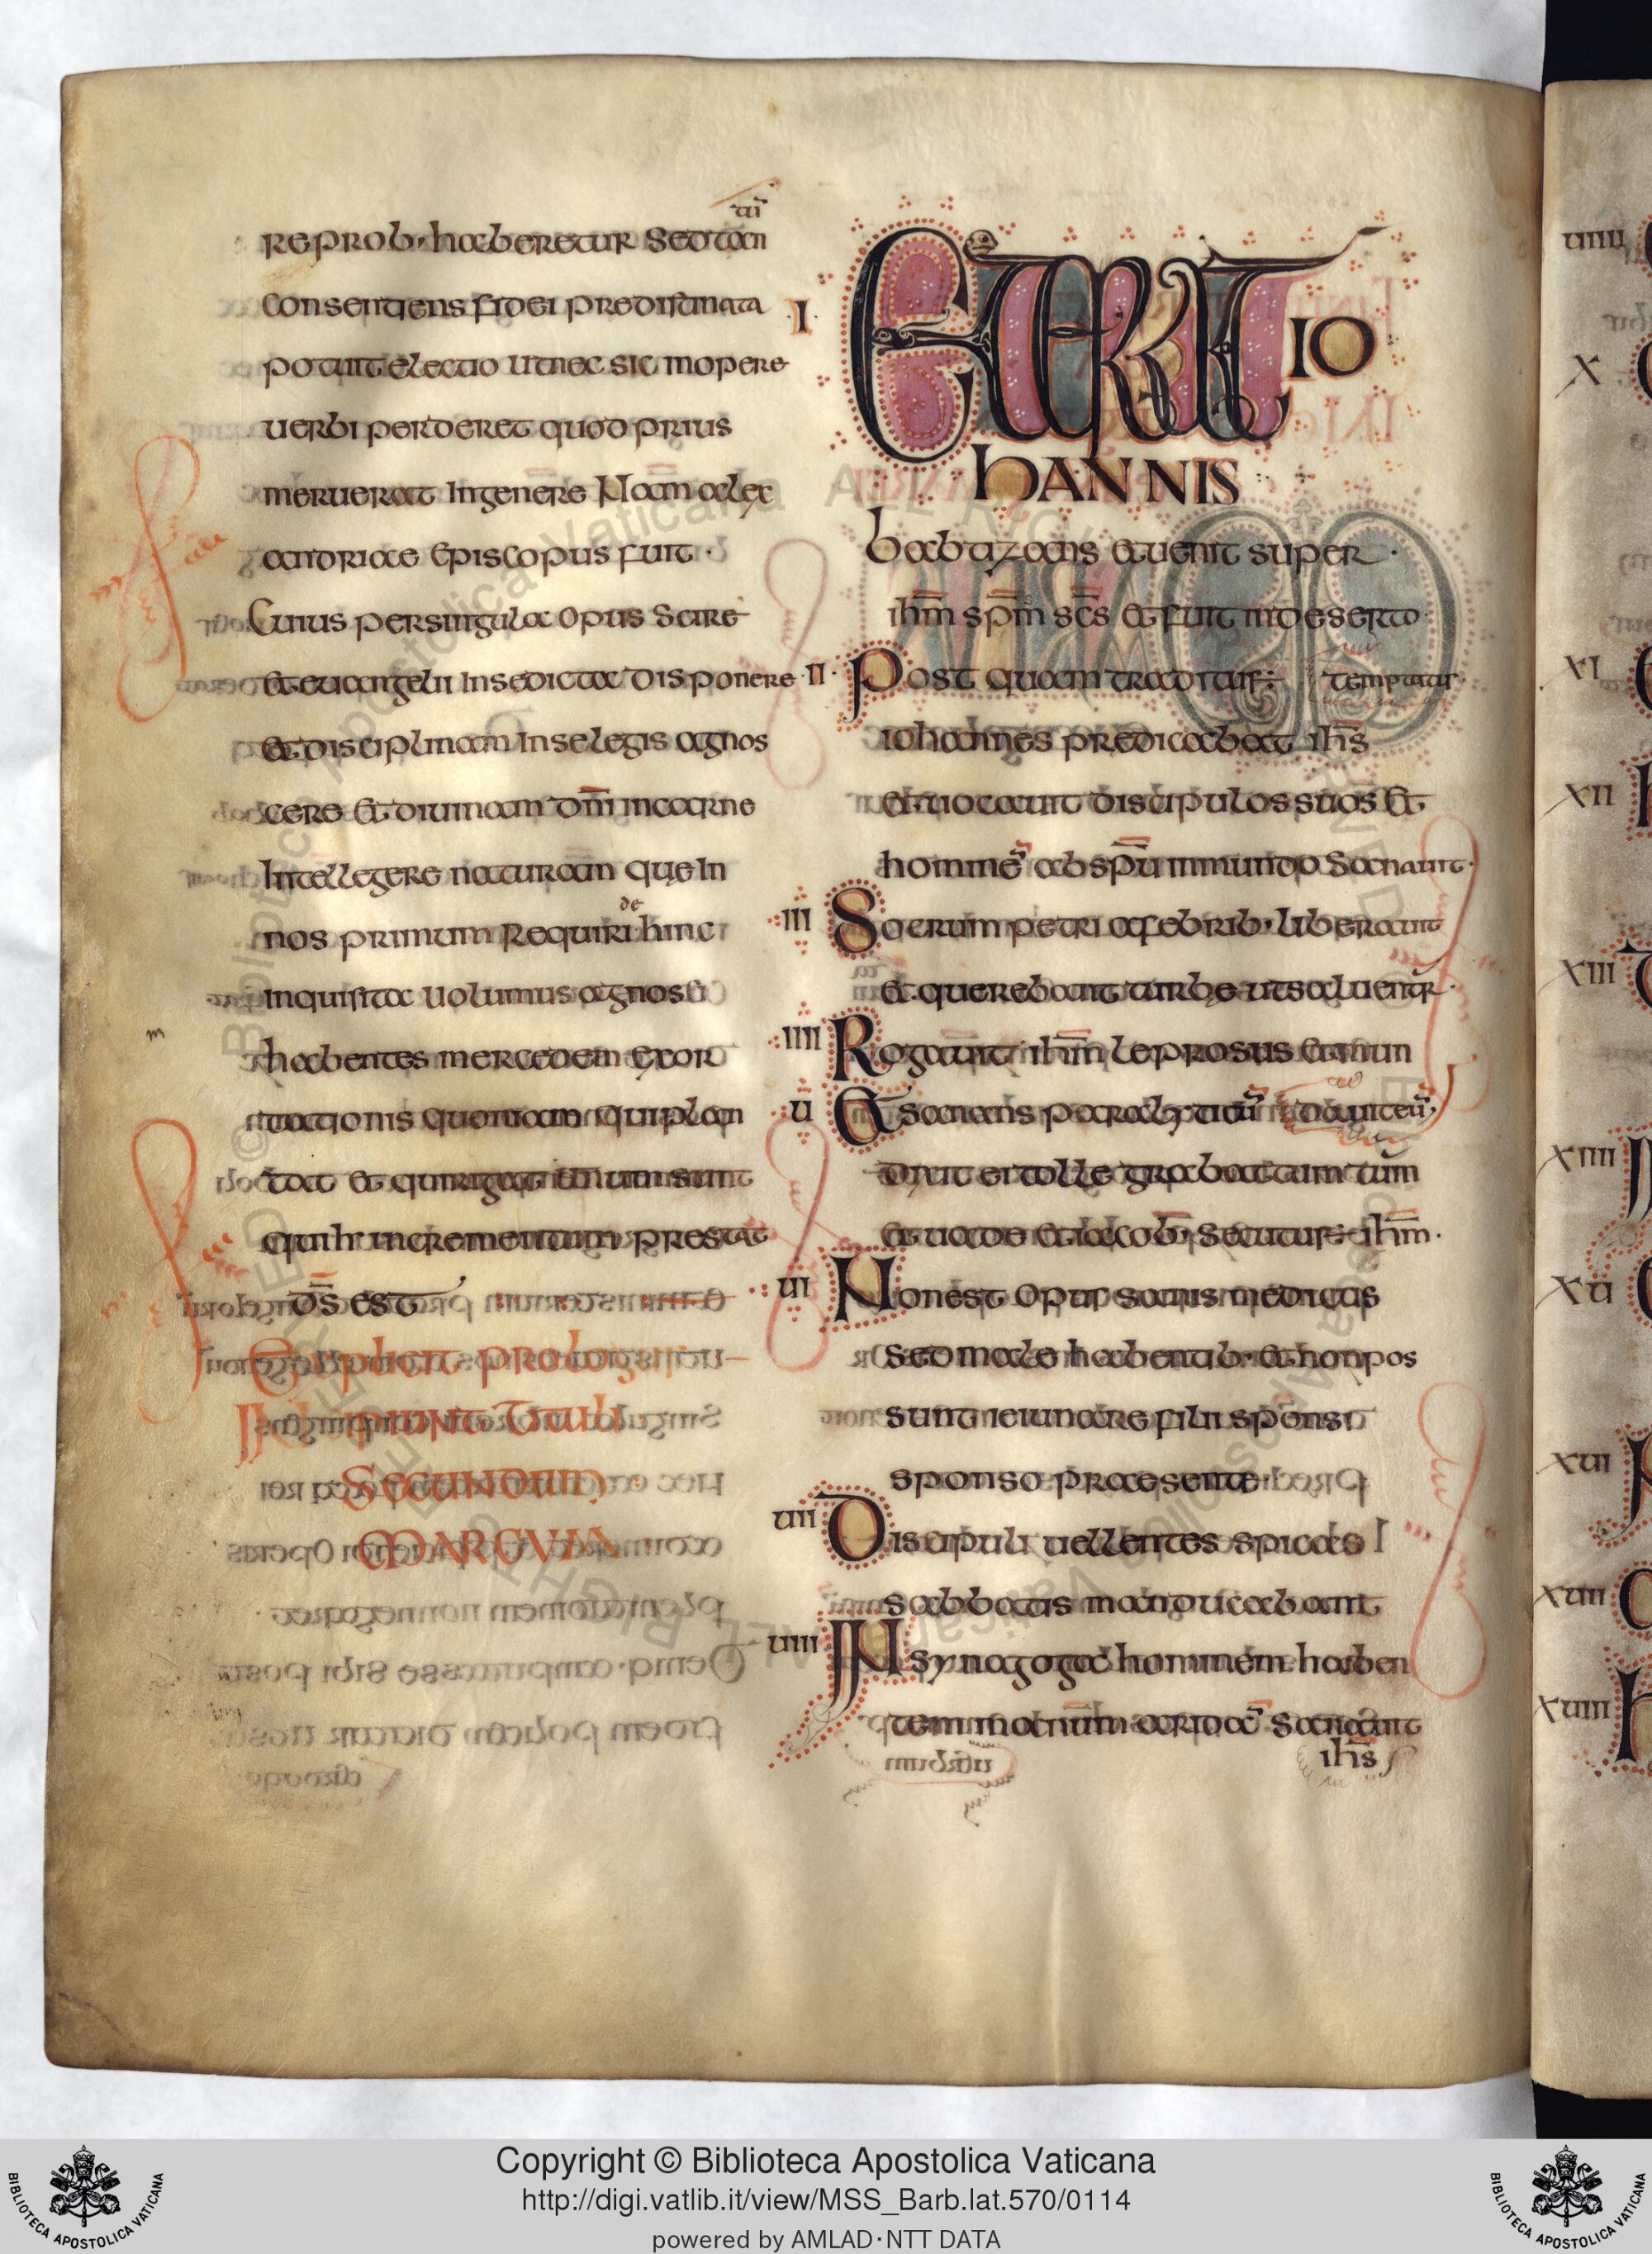 reprob· haberetur sed tam
tm̄
consentiens fidei predistinata
potuit electio ut nec sic in opere
uerbi perderet quod prius
meruerat in genere Nam alex
andriae episcopus fuit ·
Cuius per singula opus scire
et euangelii in se dicta disponere
et disciplinam in se legis agnos
cere et diuinam dn̄i in carne
intellegere naturam que in
nos primum requiri dehinc
inquisita uolumus agnosci
habentes mercedem exor
m
tationis quoniam qui plan
tat et qui rigat unum sunt
qui h̄ incrementum prestat
ds̄ est
Explicit prologus
Incipiunt tituli
Secundum
Marcum
I ERAT IO
HANNIS
babtizans et uenit super ·
ihm̄ spm̄ scs̄ et fuit in deserto ·
II Post quam traditus: temptatur
iohannes predicabat ihs̄
et uocauit discipulos suos et
homine᷒ ab spū inmundo sanauit ·
III Socrum petri a febrib· liberauit
et querebant turbe ut saluentr̄ ·
IIII Rogauit ihm̄ leprosus et mun
dauit eū
U Et sanans paralyticū
dixit ei tolle grabattum tūm
et uade
UI Non est opus sanis medicus
sed male habentib· et non pos
sunt ieiunare filii sponsi
sponso praesente ·
UII Discipuli uellentes spicas
sabbatis manducabant
UIII In synagoga hominem haben
tem manūm aridā sanauit
ihs̄
UIIII
X
XI
XII
XIII
XIIII
XU
XUI
XUII
XUIII
Copyright © Biblioteca Apostolica Vaticana
http://digi.vatlib.it/view/MSS_Barb.lat.570/0114
powered by AMLAD·NTT DATA
BIBLIOTECA APOSTOLICA VATICANA
BIBLIOTECA APOSTOLICA VATICANA